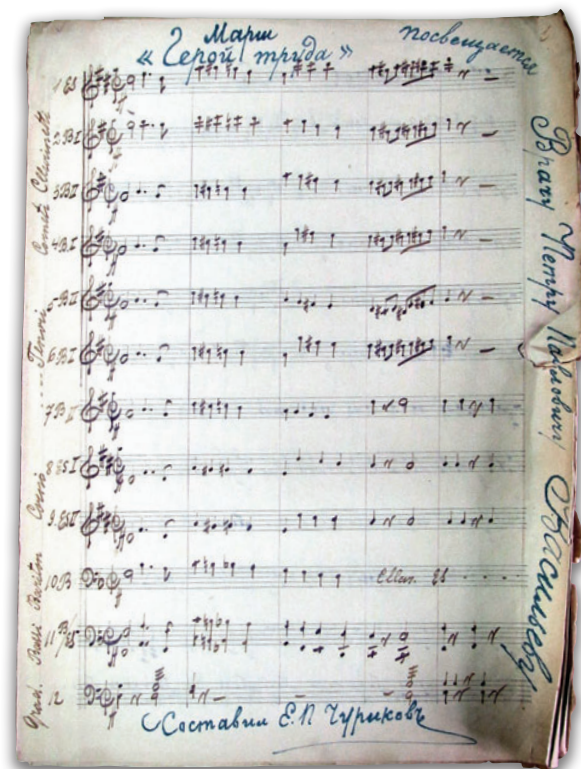 Марш
« Герой труда »
посвещается
Врачу Петру Павловичу Васильеву
Clarinetti
Cornetti
Tenori
Corni
Bariton
Bassi
1 Es
2. B I
3. B II
4. B I
5. B II
6. B I
7. B II
8. Es I
9. Es II
10 B
11 B/Es
12
Clar. Es
Составил Е. П. Чуриковъ